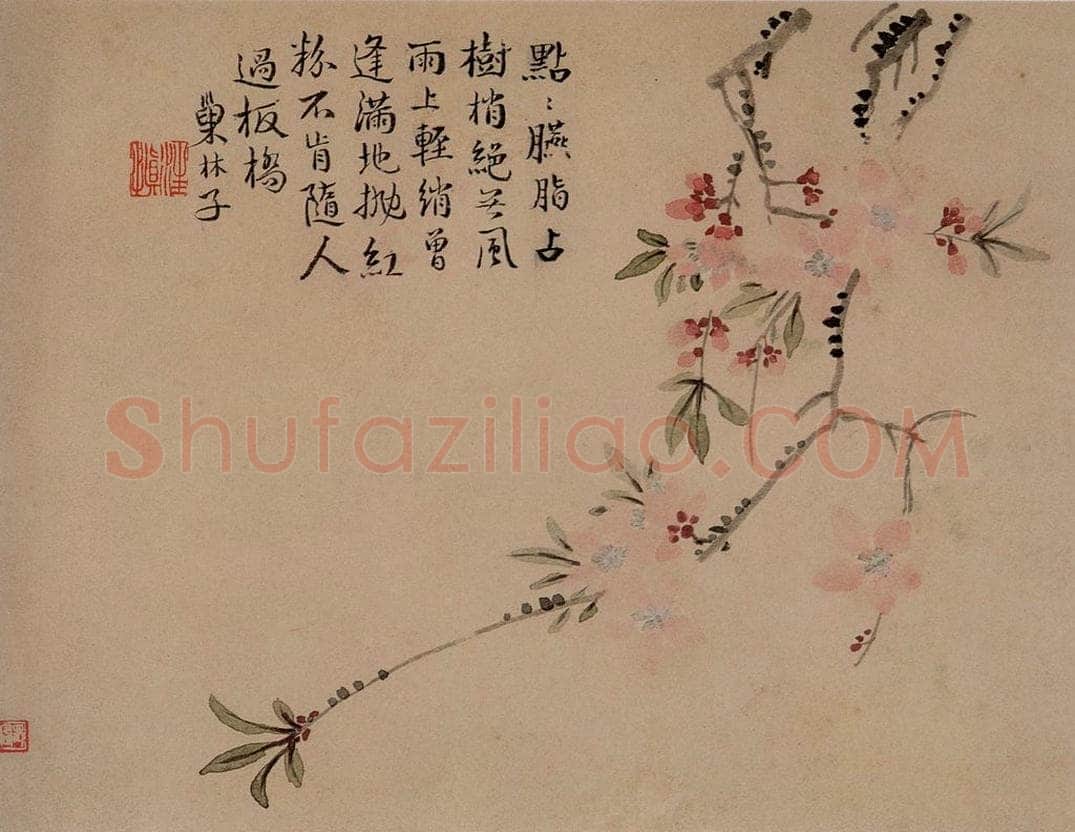 點〻臙脂占
樹梢絕無風
雨上輕綃曾
逢滿地拋紅
粉不肯隨人
過板橋
巢林子
Shufaziliao.COM